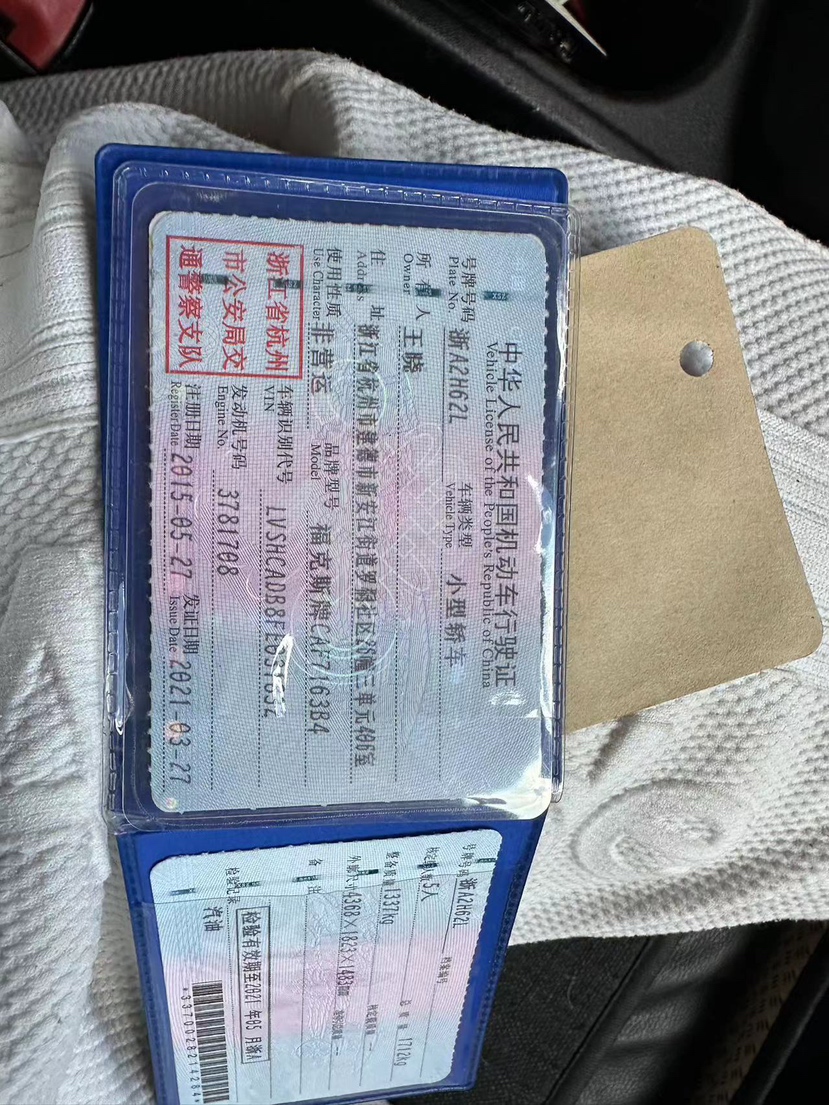 中华人民共和国机动车行驶证
Vehicle License of the People's Republic of China
号牌号码 浙A2H62L 车辆类型 小型轿车
Plate No. Vehicle Type
所有人 王晓
Owner
住 址 浙江省杭州市建德市新安江街道罗桐社区 幢三单元406室
Address
使用性质 非营运 品牌型号 福克斯牌CAF7163B4
Use Character Model
浙江省杭州
市公安局交
通警察支队
车辆识别代号 LVSHCADB8FE
VIN
发动机号码 3781708
Engine No.
注册日期 2015-05-27 发证日期 2021-03-27
Register Date Issue Date
号牌号码 浙A2H62L 档案编号
核定载人数 5人 总质量 1712kg
整备质量 1337kg 核定载质量 --
外廓尺寸 4368×1823×1483mm 准牵引总质量 --
备 注
检验有效期至2021年05月浙A
检验记录
汽油
*3370028214284*